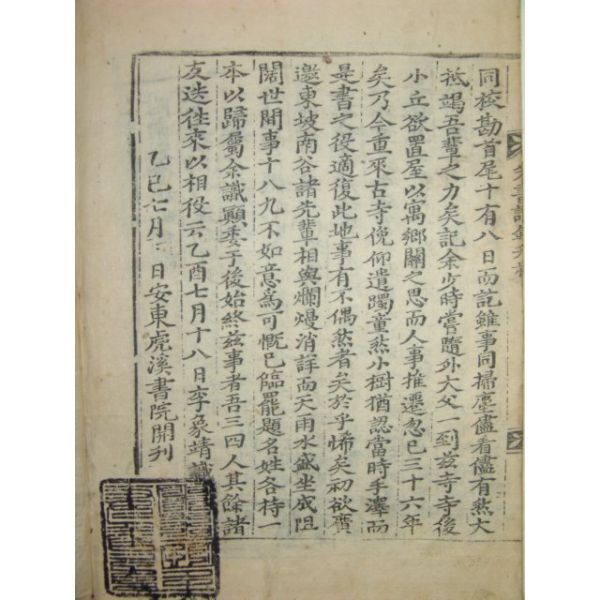 同校勘首尾十有八日而訖雖事同掃塵儘看儘有然大
祗竭吾輩之力矣記余少時嘗隨外大父一到玆寺寺後
小丘欲置屋以寓鄉關之思而人事推遷忽已三十六年
矣乃今重來古寺俛仰遺躅童然小樹猶認當時手澤而
是書之役適復此地事有不偶然者矣於乎悕矣初欲實
邀東坡南谷諸先輩相與爛熳消詳而天雨水盛坐成阻
闊世間事十八九不如意爲可慨已臨罷題名姓各持一
本以歸屬余識顚委于後始終玆事者吾三四人其餘諸
友迭往來以相役云乙酉七月十八日李象靖識
乙巳七月日安東虎溪書院開刊